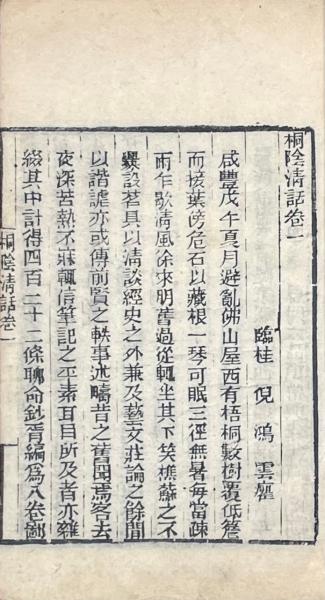 桐陰清話卷一
臨桂 倪鴻 雲癯
咸豐戊午夏月避亂佛山屋西有梧桐數樹覆低簷
而接葉傍危石以藏根一琴可眠三徑無暑每當疎
雨乍歇清風徐來朋舊過從輒坐其下笑樵蘇之不
爨設茗具以清談經史之外兼及藝文莊論之餘間
以諧謔亦或傳前賢之軼事述疇昔之舊聞焉客去
夜深苦熱不寐輒信筆記之平素耳目所及者亦雜
綴其中計得四百二十二條聊命鈔胥編為八卷鄙
桐陰清話卷一
一